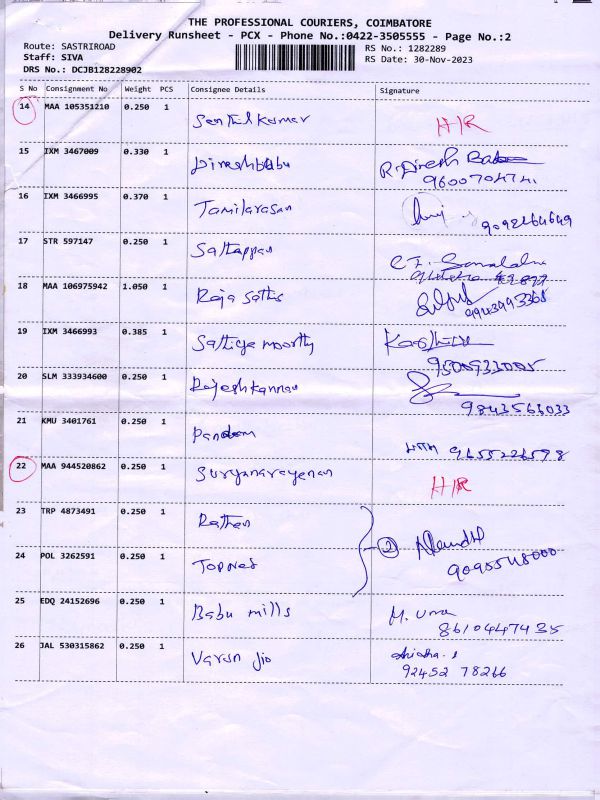 THE PROFESSIONAL COURIERS, COIMBATORE
Delivery Runsheet - PCX - Phone No.:0422-3505555 - Page No.:2
Route: SASTRIROAD
RS No.: 1282289
Staff: SIVA
RS Date: 30-Nov-2023
DRS No.: DCJB128228902
S No Consignment No Weight PCS Consignee Details Signature
14 MAA 105351210 0.250 1 Senthilkumar H/R
15 IXM 3467009 0.330 1 Dineshbabu R. Dinesh Babu
16 IXM 3466995 0.370 1 Tamilarasan
9092164649
17 STR 597147 0.250 1 Sathappan
18 MAA 106975942 1.050 1 Raja Sathis
9943993368
19 IXM 3466993 0.385 1 Sathiya moorthy
20 SLM 333934600 0.250 1 Rajeshkannan
9843563033
21 KMU 3401761 0.250 1
22 MAA 944520862 0.250 1 Suryanarayanan H/R
23 TRP 4873491 0.250 1 Rathan
2
24 POL 3262591 0.250 1
9095548000
25 EDQ 24152696 0.250 1 Babu mills M. Uma
8610447435
26 JAL 530315862 0.250 1 Varun Jio
92452 78266